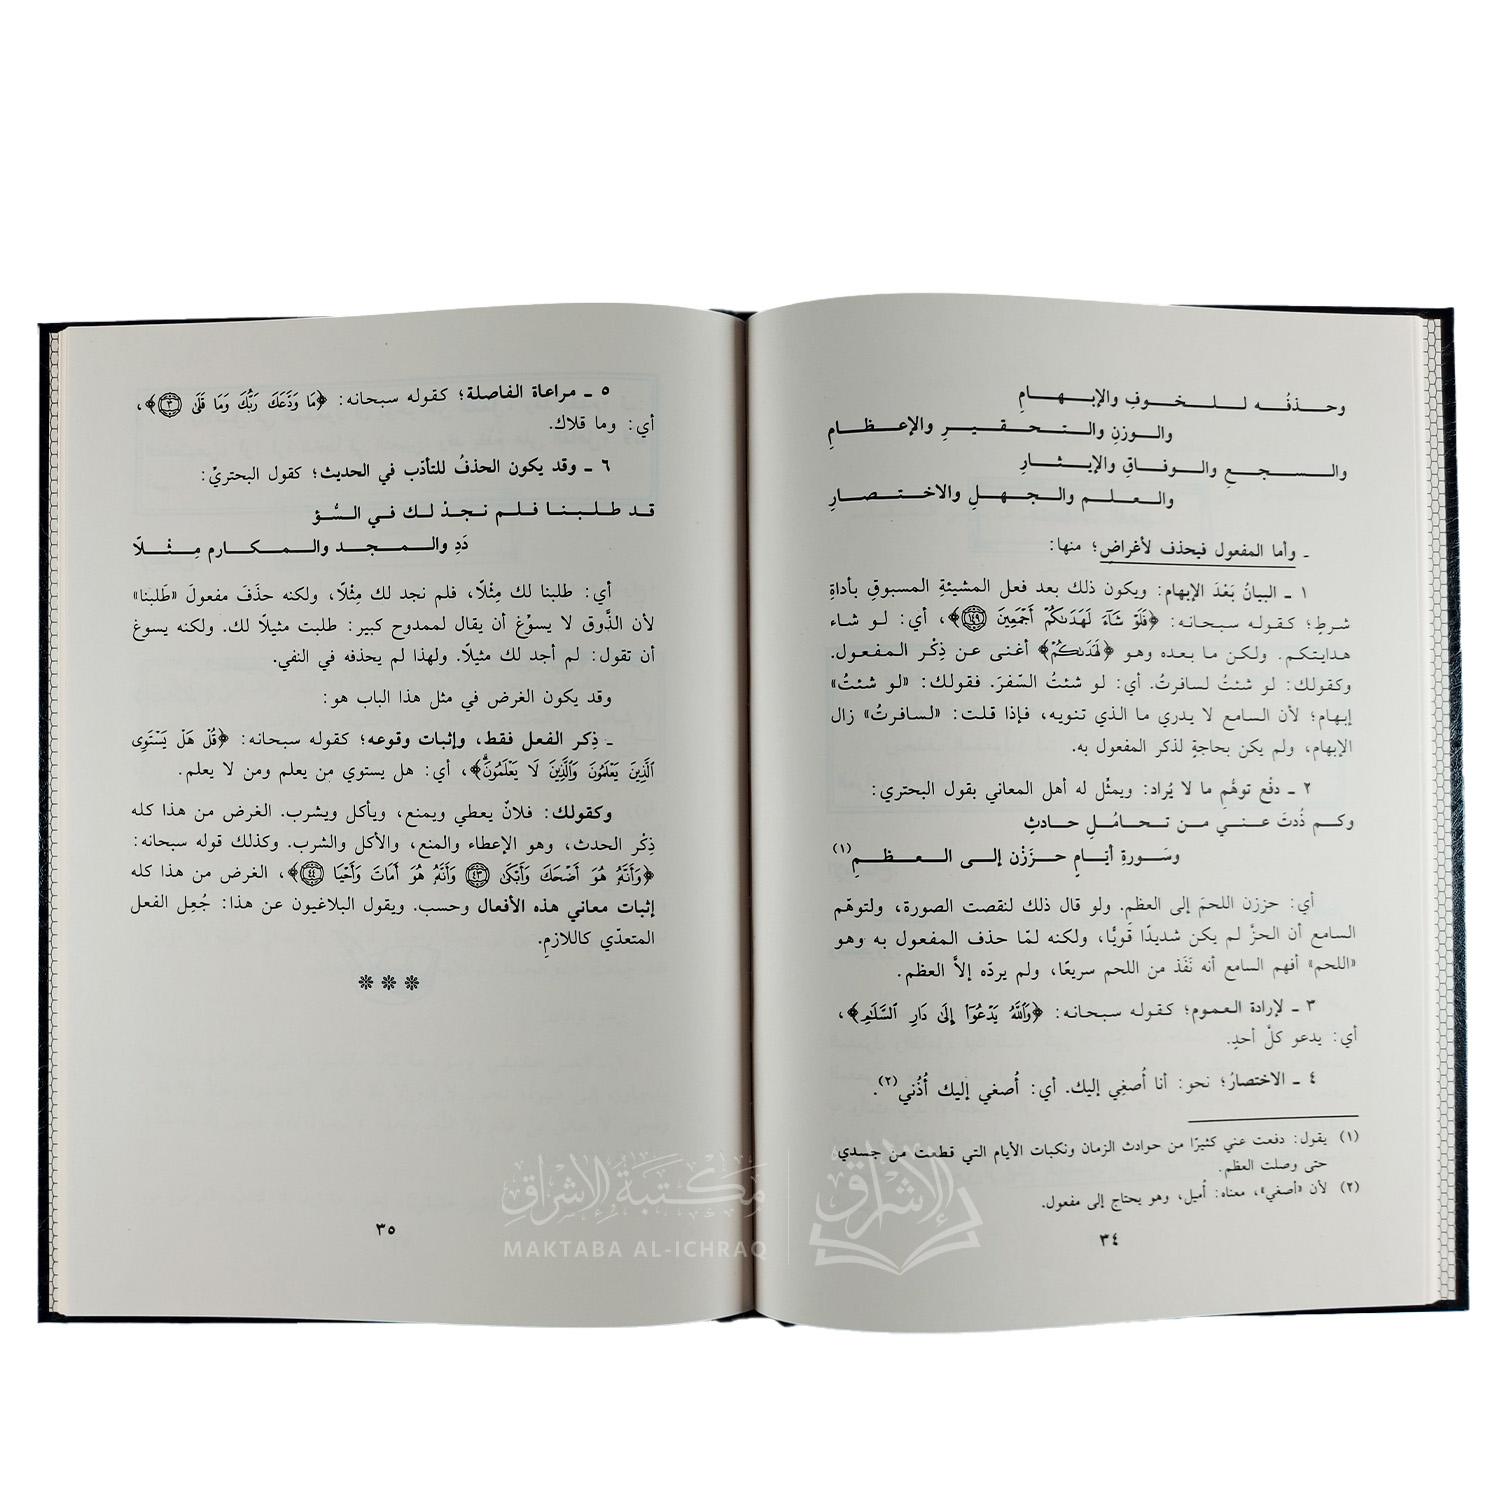 وحــذفُــه لــلــخــوفِ والإبــهــامِ
والــوزنِ والــتــحــقــيــرِ والإعــظــامِ
والــســجــعِ والــوفــاقِ والإيــثــارِ
والــعــلــمِ والــجــهــلِ والاخــتــصــارِ
ـ وأما المفعول فيحذف لأغراضٍ؛ منها:
١ ـ البيانُ بَعْدَ الإبهام: ويكون ذلك بعد فعل المشيئةِ المسبوقِ بأداةِ
شرطٍ؛ كقوله سبحانه: ﴿فَلَوْ شَآءَ لَهَدَىٰكُمْ أَجْمَعِينَ ١٤٩﴾، أي: لو شاء
هدايتكم. ولكن ما بعده وهو ﴿لَهَدَىٰكُمْ﴾ أغنى عن ذِكْر المفعول.
وكقولك: لو شئتُ لسافرتُ. أي: لو شئتُ السّفرَ. فقولك: «لو شئتُ»
إبهام؛ لأن السامع لا يدري ما الذي تنويه، فإذا قلت: «لسافرتُ» زال
الإبهام، ولم يكن بحاجةٍ لذكر المفعول به.
٢ ـ دفْع توهُّمِ ما لا يُراد: ويمثّل له أهل المعاني بقول البحتري:
وكــم ذُدتَ عــنــي مــن تــحــامُــلِ حــادثٍ
وسَــورةِ أيّــامٍ حــزَزْن إلــى الــعــظــمِ(١)
أي: حززن اللحمَ إلى العظم. ولو قال ذلك لنقصت الصورة، ولتوهّم
السامع أن الحزَّ لم يكن شديدًا قويًّا، ولكنه لمّا حذف المفعول به وهو
«اللحم» أفهم السامع أنه نَفَذ من اللحم سريعًا، ولم يردّه إلاَّ العظم.
٣ ـ لإرادة العموم؛ كقوله سبحانه: ﴿وَٱللَّهُ يَدْعُوٓا۟ إِلَىٰ دَارِ ٱلسَّلَٰمِ﴾،
أي: يدعو كلَّ أحدٍ.
٤ ـ الاختصارُ؛ نحو: أنا أُصغِي إليك. أي: أُصغي إليك أُذُني(٢).
(١) يقول: دفعت عني كثيرًا من حوادث الزمان ونكبات الأيام التي قطعت من جسدي
حتى وصلت العظم.
(٢) لأن «أصغي»، معناه: أُميل، وهو يحتاج إلى مفعول.
٣٤
٥ ـ مراعاة الفاصلة؛ كقوله سبحانه: ﴿مَا وَدَّعَكَ رَبُّكَ وَمَا قَلَىٰ ٣﴾،
أي: وما قلاك.
٦ ـ وقد يكون الحذفُ للتأدّب في الحديث؛ كقول البحتريْ:
قــد طــلــبــنــا فــلــم نــجــدْ لــك فــي الــسُّــؤ
دَدِ والــمــجــد والــمــكــارم مِــثْــلًا
أي: طلبنا لك مِثْلًا، فلم نجد لك مِثْلًا، ولكنه حذَفَ مفعولَ «طَلبنا»
لأن الذَّوق لا يسوّغ أن يقال لممدوح كبير: طلبت مثيلًا لك. ولكنه يسوغ
أن تقول: لم أجد لك مثيلًا. ولهذا لم يحذفه في النفي.
وقد يكون الغرض في مثل هذا الباب هو:
ـ ذِكر الفعل فقط، وإثبات وقوعه؛ كقوله سبحانه: ﴿قُلْ هَلْ يَسْتَوِى
ٱلَّذِينَ يَعْلَمُونَ وَٱلَّذِينَ لَا يَعْلَمُونَ﴾، أي: هل يستوي من يعلم ومن لا يعلم.
وكقولك: فلانٌ يعطي ويمنع، ويأكل ويشرب. الغرض من هذا كله
ذِكْر الحدث، وهو الإعطاء والمنع، والأكل والشرب. وكذلك قوله سبحانه:
﴿وَأَنَّهُۥ هُوَ أَضْحَكَ وَأَبْكَىٰ ٤٣ وَأَنَّهُۥ هُوَ أَمَاتَ وَأَحْيَا ٤٤﴾، الغرض من هذا كله
إثبات معاني هذه الأفعال وحسب. ويقول البلاغيون عن هذا: جُعِل الفعل
المتعدّي كاللازمِ.
٣٥
مكتبة الإشراق
MAKTABA AL-ICHRAQ
الإشراق